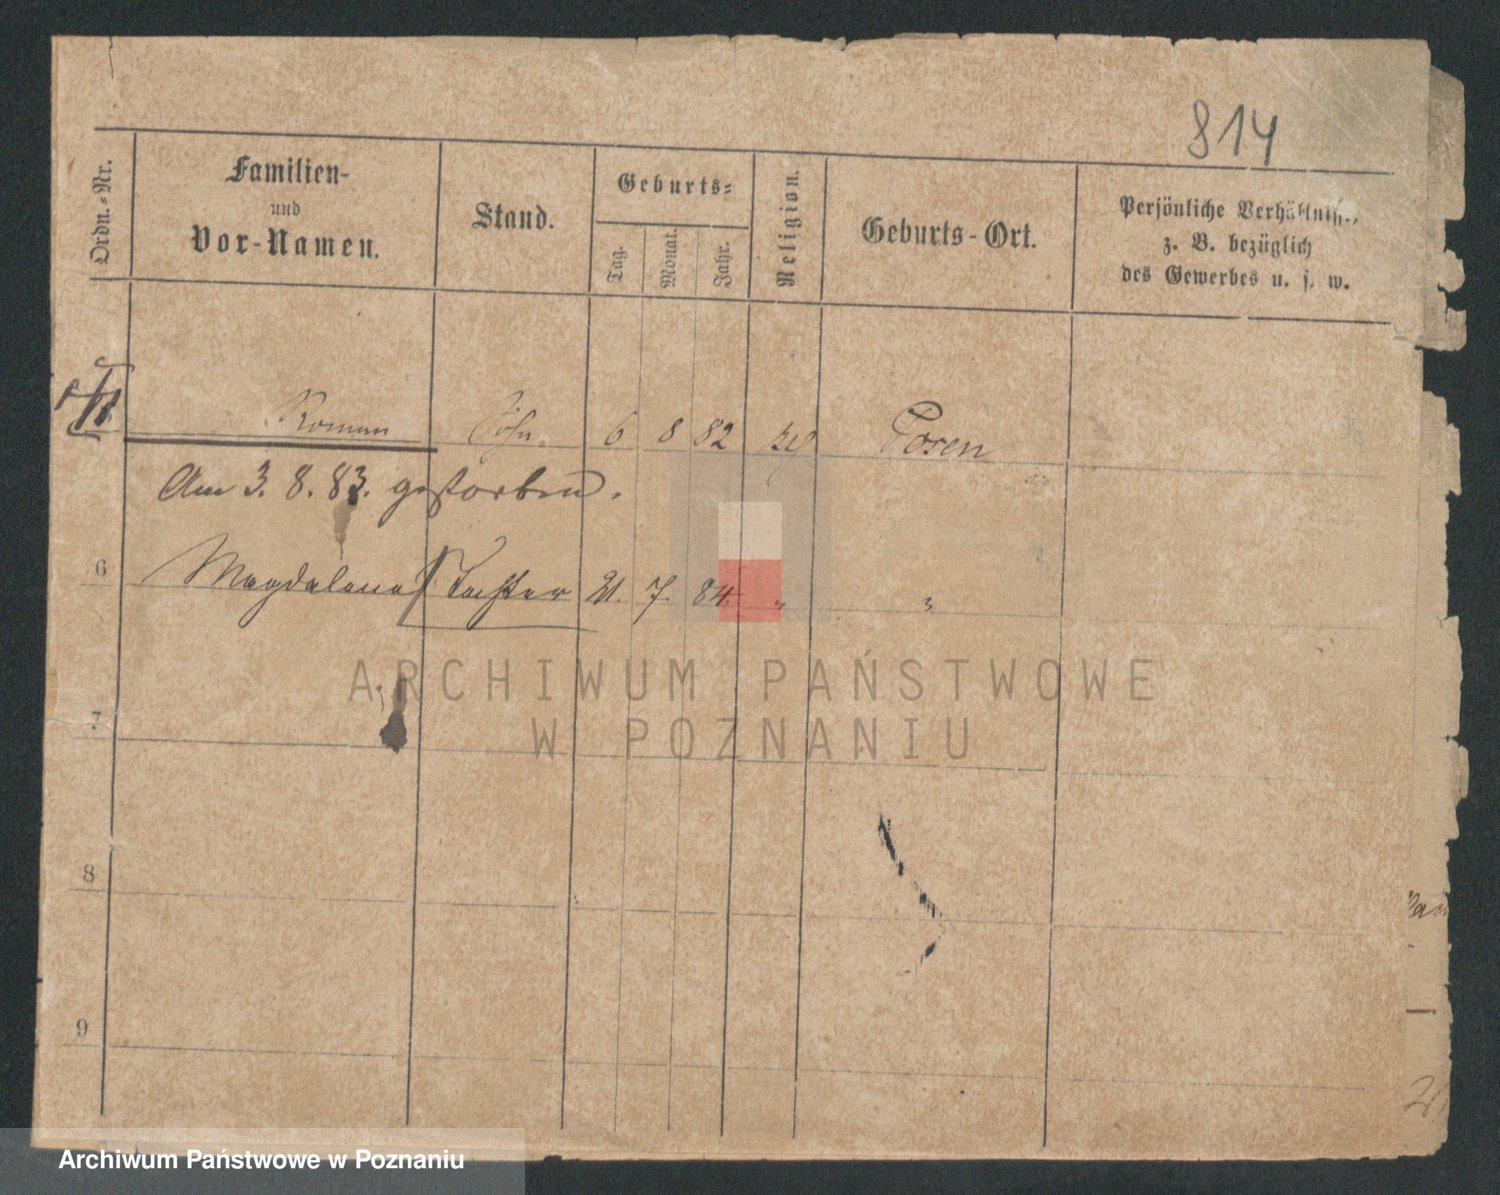 814
Ordn.-Nr.
Familien-
und
Vor-Namen.
Stand.
Geburts-
Tag.
Monat.
Jahr.
Religion.
Geburts-Ort.
Persönliche Verhältnisse,
z. B. bezüglich
des Gewerbes u. s. w.
Roman Sohn 6 8 82 Posen
Am 3. 8. 83. gestorben.
6 Magdalena Tochter 21. 7. 84. " "
7
ARCHIWUM PAŃSTWOWE
W POZNANIU
8
9
Archiwum Państwowe w Poznaniu